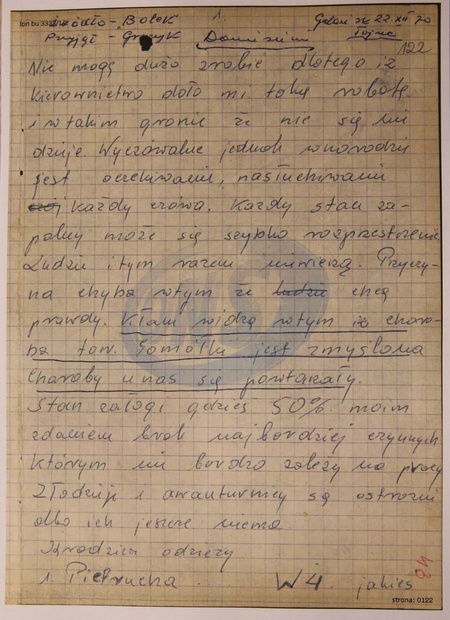 Źródło - Bolek 1. Gdańsk 22.XII 70
Przyjął - Graczyk Doniesienie Tajne
122
Nie mogę dużo zrobić dlatego iż
kierownictwo dało mi taką robotę
i w takim gronie że nic się nie
dzieje. Wyczuwalne jednak w narodzie
jest oczekiwanie, nasłuchiwanie
każdy czuwa. Każdy stan za-
palny może się szybko rozprzestrzenić
Ludzie i tym razem nie wierzą. Przyczy-
na chyba w tym że ludzie chcą
prawdy. Kłam widzą w tym iż choro-
ba tow. Gomółki jest zmyślona
Choroby u nas się powtarzały.
Stan załogi gdzieś 50% moim
zdaniem brak najbardziej czynnych
którym nie bardzo zależy na pracy
Złodzieje i awanturnicy są ostrożni
dla ich jeszcze niema
Kradzież odzieży
1. Pietrucha .. W4. jakieś
strona: 0122